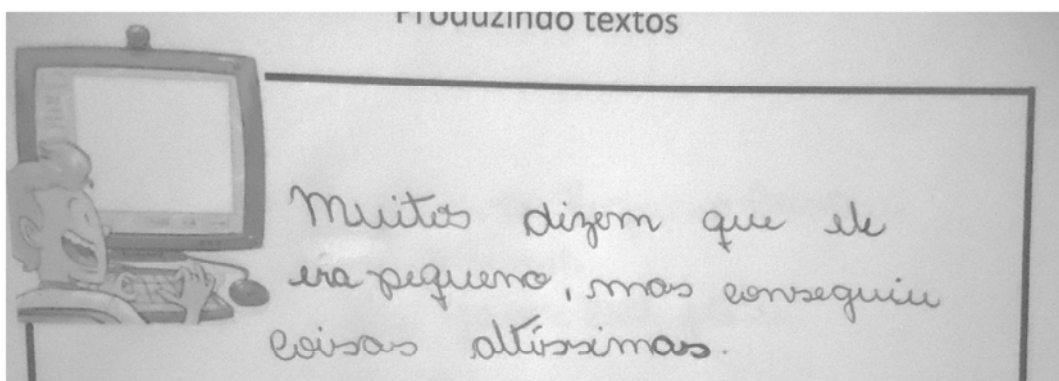 Produzindo textos
Muitos dizem que ele
era pequeno, mas conseguiu
coisas altíssimas.